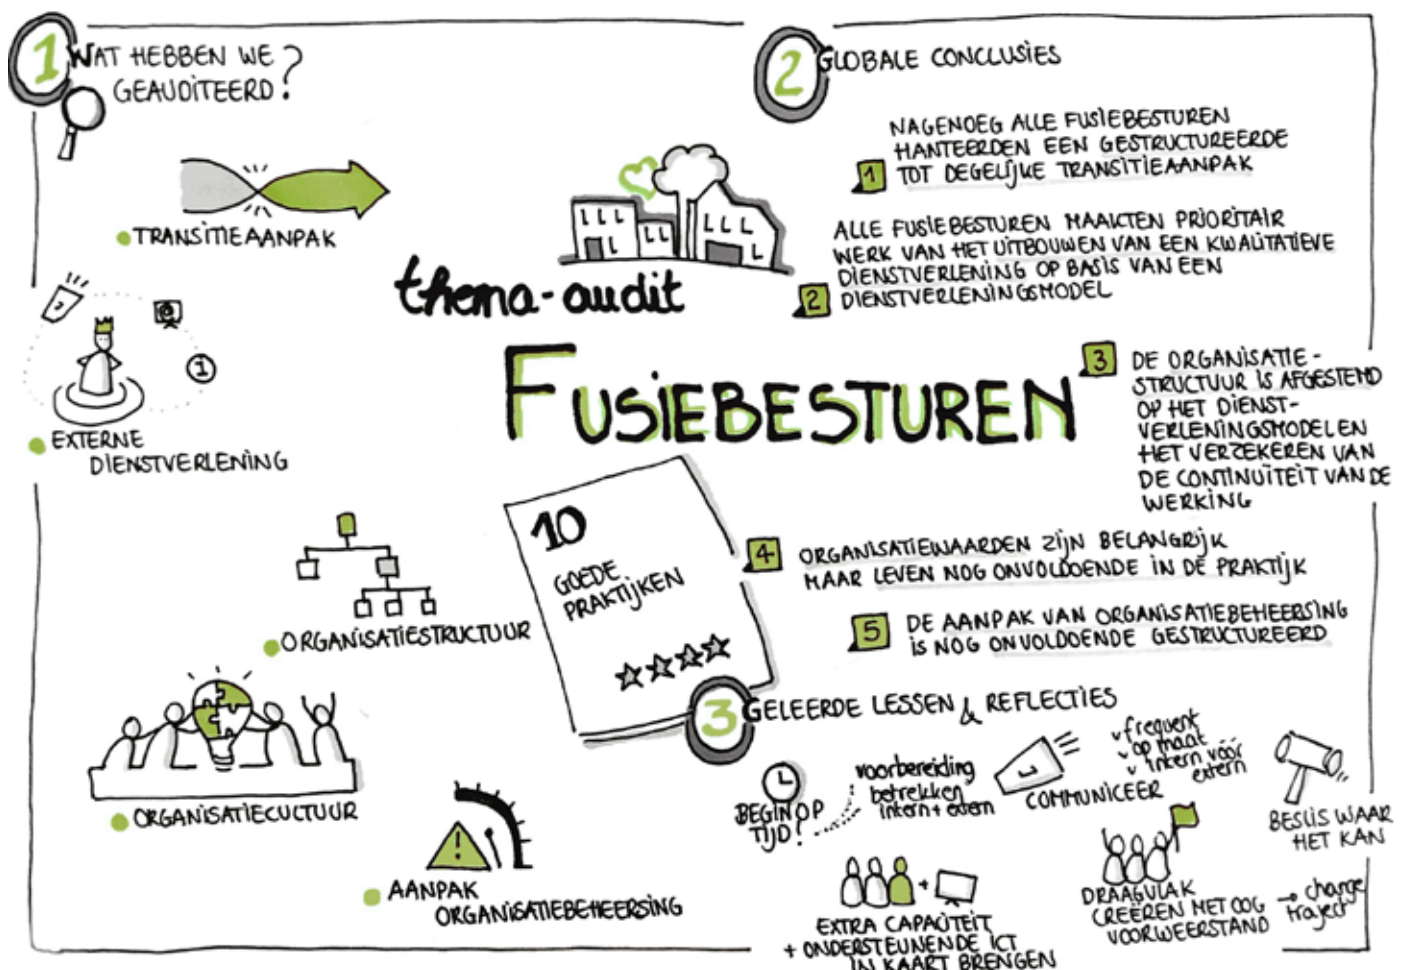 1 WAT HEBBEN WE
GEAUDITEERD?
TRANSITIEAANPAK
EXTERNE
DIENSTVERLENING
ORGANISATIESTRUCTUUR
ORGANISATIECULTUUR
AANPAK
ORGANISATIEBEHEERSING
thema-audit
FUSIEBESTUREN
10
GOEDE
PRAKTIJKEN
2 GLOBALE CONCLUSIES
NAGENOEG ALLE FUSIEBESTUREN
HANTEERDEN EEN GESTRUCTUREERDE
1 TOT DEGELIJKE TRANSITIEAANPAK
ALLE FUSIEBESTUREN MAAKTEN PRIORITAIR
WERK VAN HET UITBOUWEN VAN EEN KWALITATIEVE
DIENSTVERLENING OP BASIS VAN EEN
2 DIENSTVERLENINGSMODEL
3 DE ORGANISATIE-
STRUCTUUR IS AFGESTEMD
OP HET DIENST-
VERLENINGSMODEL EN
HET VERZEKEREN VAN
DE CONTINUÏTEIT VAN DE
WERKING
4 ORGANISATIEWAARDEN ZIJN BELANGRIJK
MAAR LEVEN NOG ONVOLDOENDE IN DE PRAKTIJK
5 DE AANPAK VAN ORGANISATIEBEHEERSING
IS NOG ONVOLDOENDE GESTRUCTUREERD
3 GELEERDE LESSEN & REFLECTIES
BEGIN OP
TIJD!
voorbereiding
betrekken
intern + extern
COMMUNICEER
frequent
op maat
intern vóór
extern
BESLIS WAAR
HET KAN
EXTRA CAPACITEIT
+ ONDERSTEUNENDE ICT
IN KAART BRENGEN
DRAAGVLAK
CREËREN MET OOG
VOOR WEERSTAND
→ change
traject